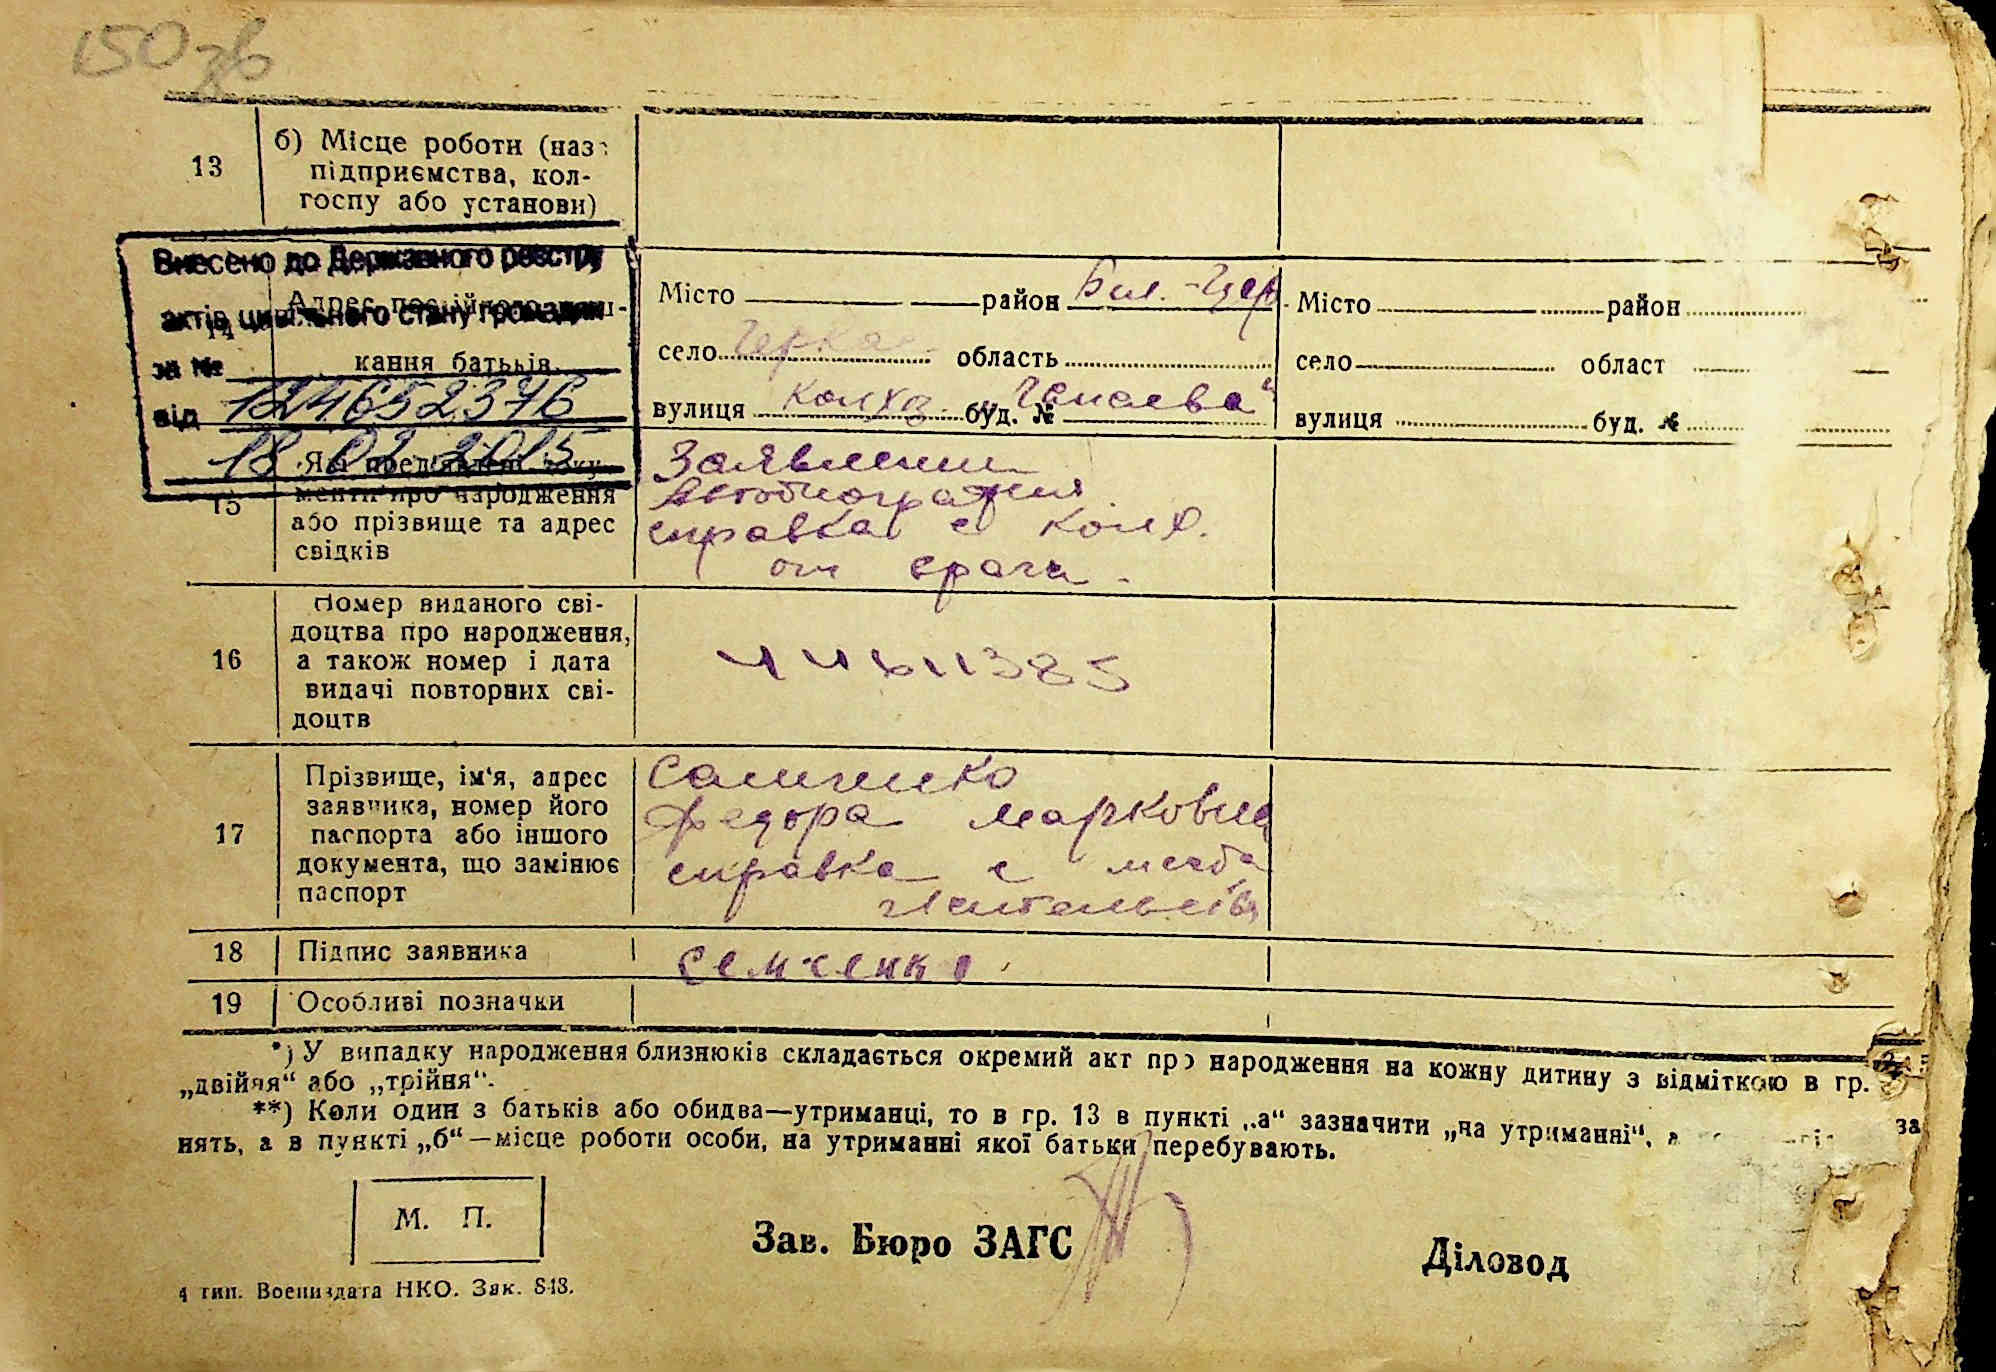 150 зв
13
б) Місце роботи (наз
підприємства, кол-
госпу або установи)
Внесено до Державного реєстру
актів цивільного стану громадян
за №
124652376
від
18 02 2015
14
Адрес
кання батьків
Місто район Бил.-Цер
село Черка область
вулиця Колхоз буд. № „Чапаева“
Місто район
село област
вулиця буд. №
15
Які
менти про народження
або прізвище та адрес
свідків
Заявлении
Автобиография
справка с колх.
от врача.
16
Номер виданого сві-
доцтва про народження,
а також номер і дата
видачі повторних сві-
доцтв
385
17
Прізвище, ім‘я, адрес
заявника, номер його
паспорта або іншого
документа, що замінює
паспорт
Федора Марковна
справка с места
жительств
18
Підпис заявника
Семченко
19
Особливі позначки
*) У випадку народження близнюків складається окремий акт про народження на кожну дитину з відміткою в гр.
„двійня“ або „трійня“.
**) Коли один з батьків або обидва—утриманці, то в гр. 13 в пункті „а“ зазначити „на утриманні“, а за
нять, а в пункті „б“—місце роботи особи, на утриманні якої батьки перебувають.
М. П.
Зав. Бюро ЗАГС
Діловод
4 тип. Воениздата НКО. Зак. 813.